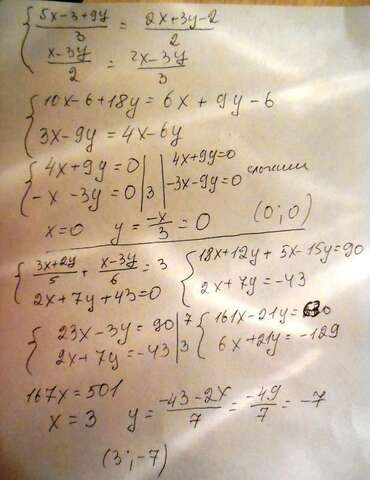 { 5x-3+9y/3 = 2x+3y-2/2
x-3y/2 = 2x-3y/3
{ 10x-6+18y = 6x+9y-6
3x-9y = 4x-6y
{ 4x+9y=0 | | 4x+9y=0
-x-3y=0 | 3 | -3x-9y=0 сложим
x=0 y = -x/3 = 0 (0;0)
{ 3x+2y/5 + x-3y/6 = 3 { 18x+12y+5x-15y=90
2x+7y+43=0 2x+7y=-43
{ 23x-3y=90 | 7 { 161x-21y= 630
2x+7y=-43 | 3 6x+21y=-129
167x=501
x=3 y = -43-2x/7 = -49/7 = -7
(3;-7)